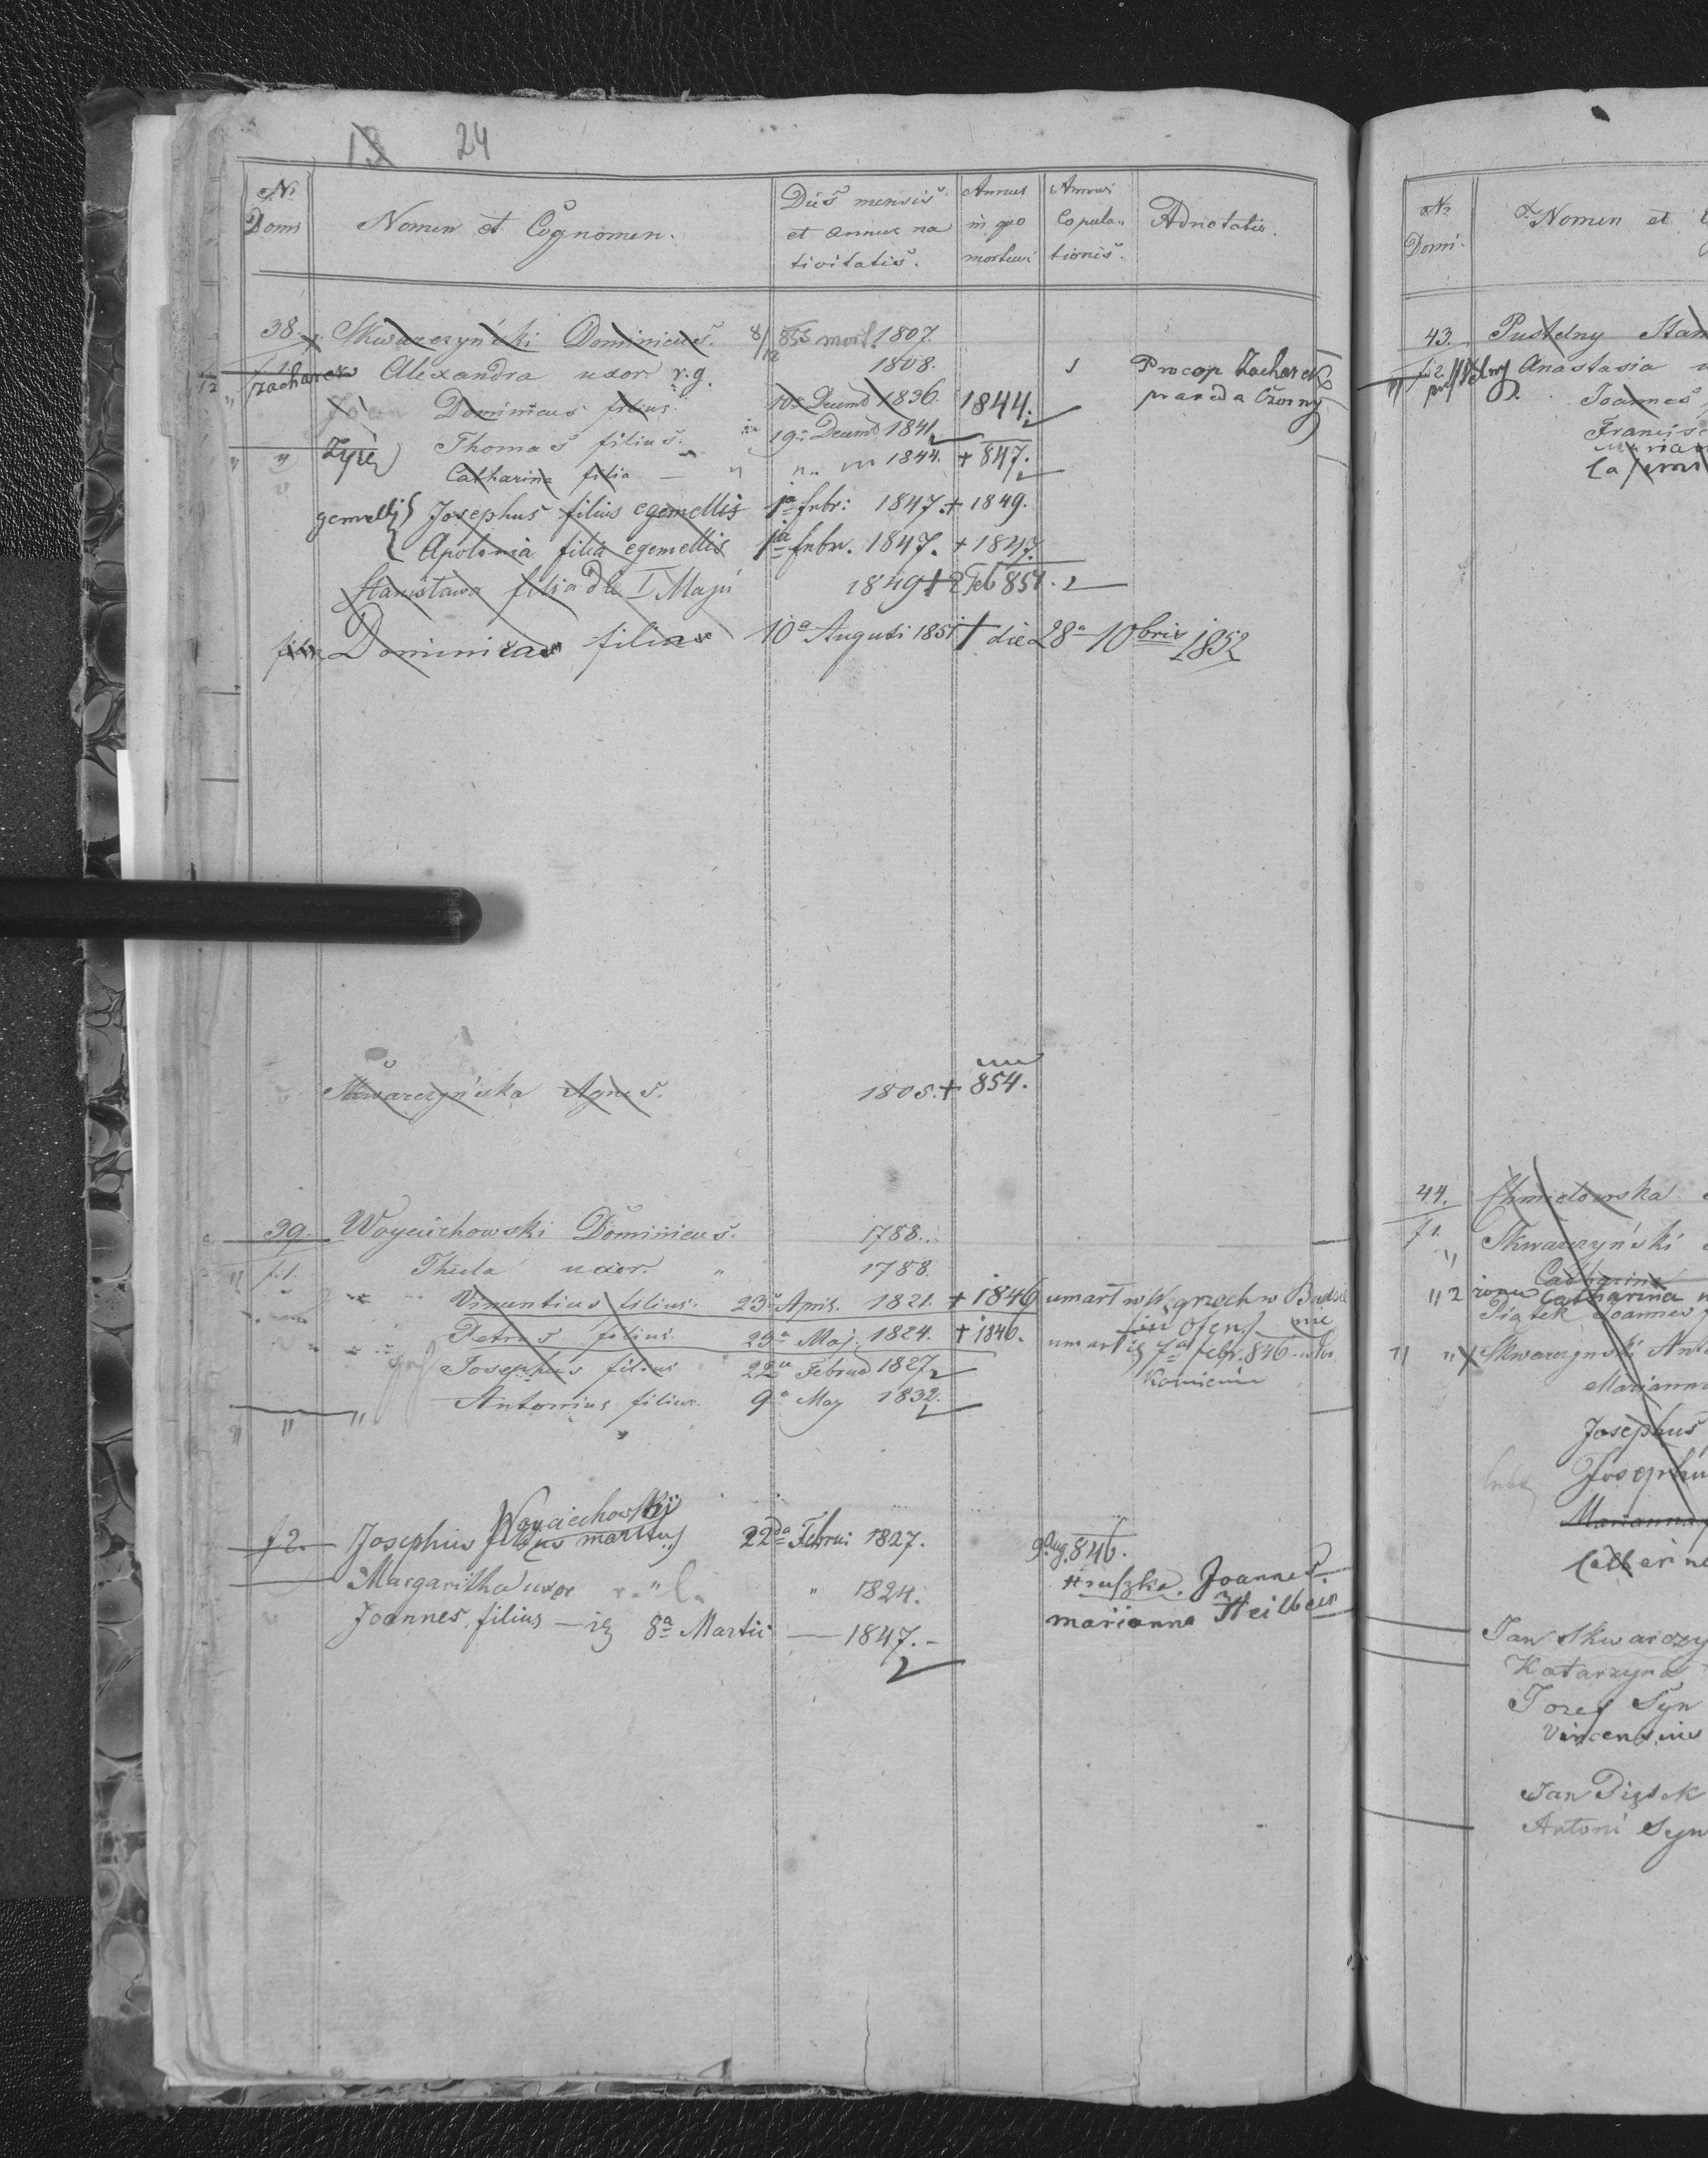 13 24
No Domi
Nomen et Cognomen.
Dies mensis et annus nativitatis.
Annus in quo mortuus
Annus Copulationis.
Adnotatio.
38. Skwarczyński Dominicus. 8/12 855 mort 1807.
f. 1. Zacharek Alexandra uxor r. g. 1808. Procop Zacharek
Dominicus filius. 10a Decemb 1836. 1844. prawda Czorny
Żyie Thomas filius. 19a Decemb 1841.
Catharina filia — " 1844. + 847.
gemelli Josephus filius egemellis 1a febr: 1847. + 1849.
Apolonia filia egemellis 1a febr. 1847. + 1847
Stanisława filia d I Maji 1849 + 2 Feb 851.
Dominicus filius 10a Augusti 1851 + die 28a 10bris 1852
Skwarczyńska Agnes. 1805. + 854.
39. Woyciechowski Dominicus. 1788.
" f. 1. Thecla uxor. " 1788.
Vincentius filius. 23a April. 1821. + 1846 umarł w Węgrzech w Budzie
Petrus filius. 25a Maj. 1824. + 1846. Ofen
umarł 7a febr. 846
Josephus filius 22a Februa 1827
Antonius filius. 9a May 1832.
" " "
Woyciechowski
f 2. Josephus filius maritus 22da Februi 1827. 9 Aug. 846.
Margaritha uxor r. " l. " 1824. Hruszka Joannes
Joannes filius — 8a Martii — 1847. — marianna Heilbein
No Domi.
Nomen et
43. Pustelny Stan
f. 2. Anastasia
Joannes
Francisc
44. Chmielowska
f 1. Skwarczyński
" Catharina
" 2 żona Catharina
Piątek Joannes
" " Skwarzynski Ant
Marianna
Josephus
Josephu
Marianna
Catharina
Jan Skwarczy
Katarzyna
Jozef Syn
Vincentius
Jan Piątek
Antoni Syn